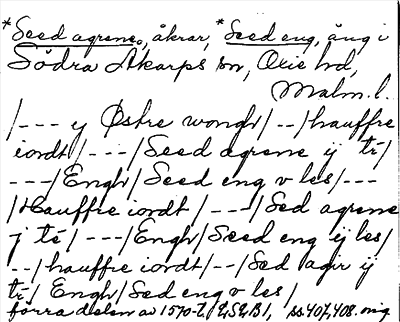 *Seed agrene, åkrar, *Seed eng, äng i
Södra Åkarps sn, Oxie hd,
Malm. l.
/--- ij Østre wongh/--/hauffre
iordt/---/Seed agrene ij tr/
---/Engh/Seed eng v les/---
/Hauffre iordt/---/Sed agrene
j té/---/Engh/Seed eng ij les/
--/hauffre iordt/--/Sed agir ij
tr/Engh/Sed eng v les/
förra delen av 1570-t. ss. 407, 408. orig